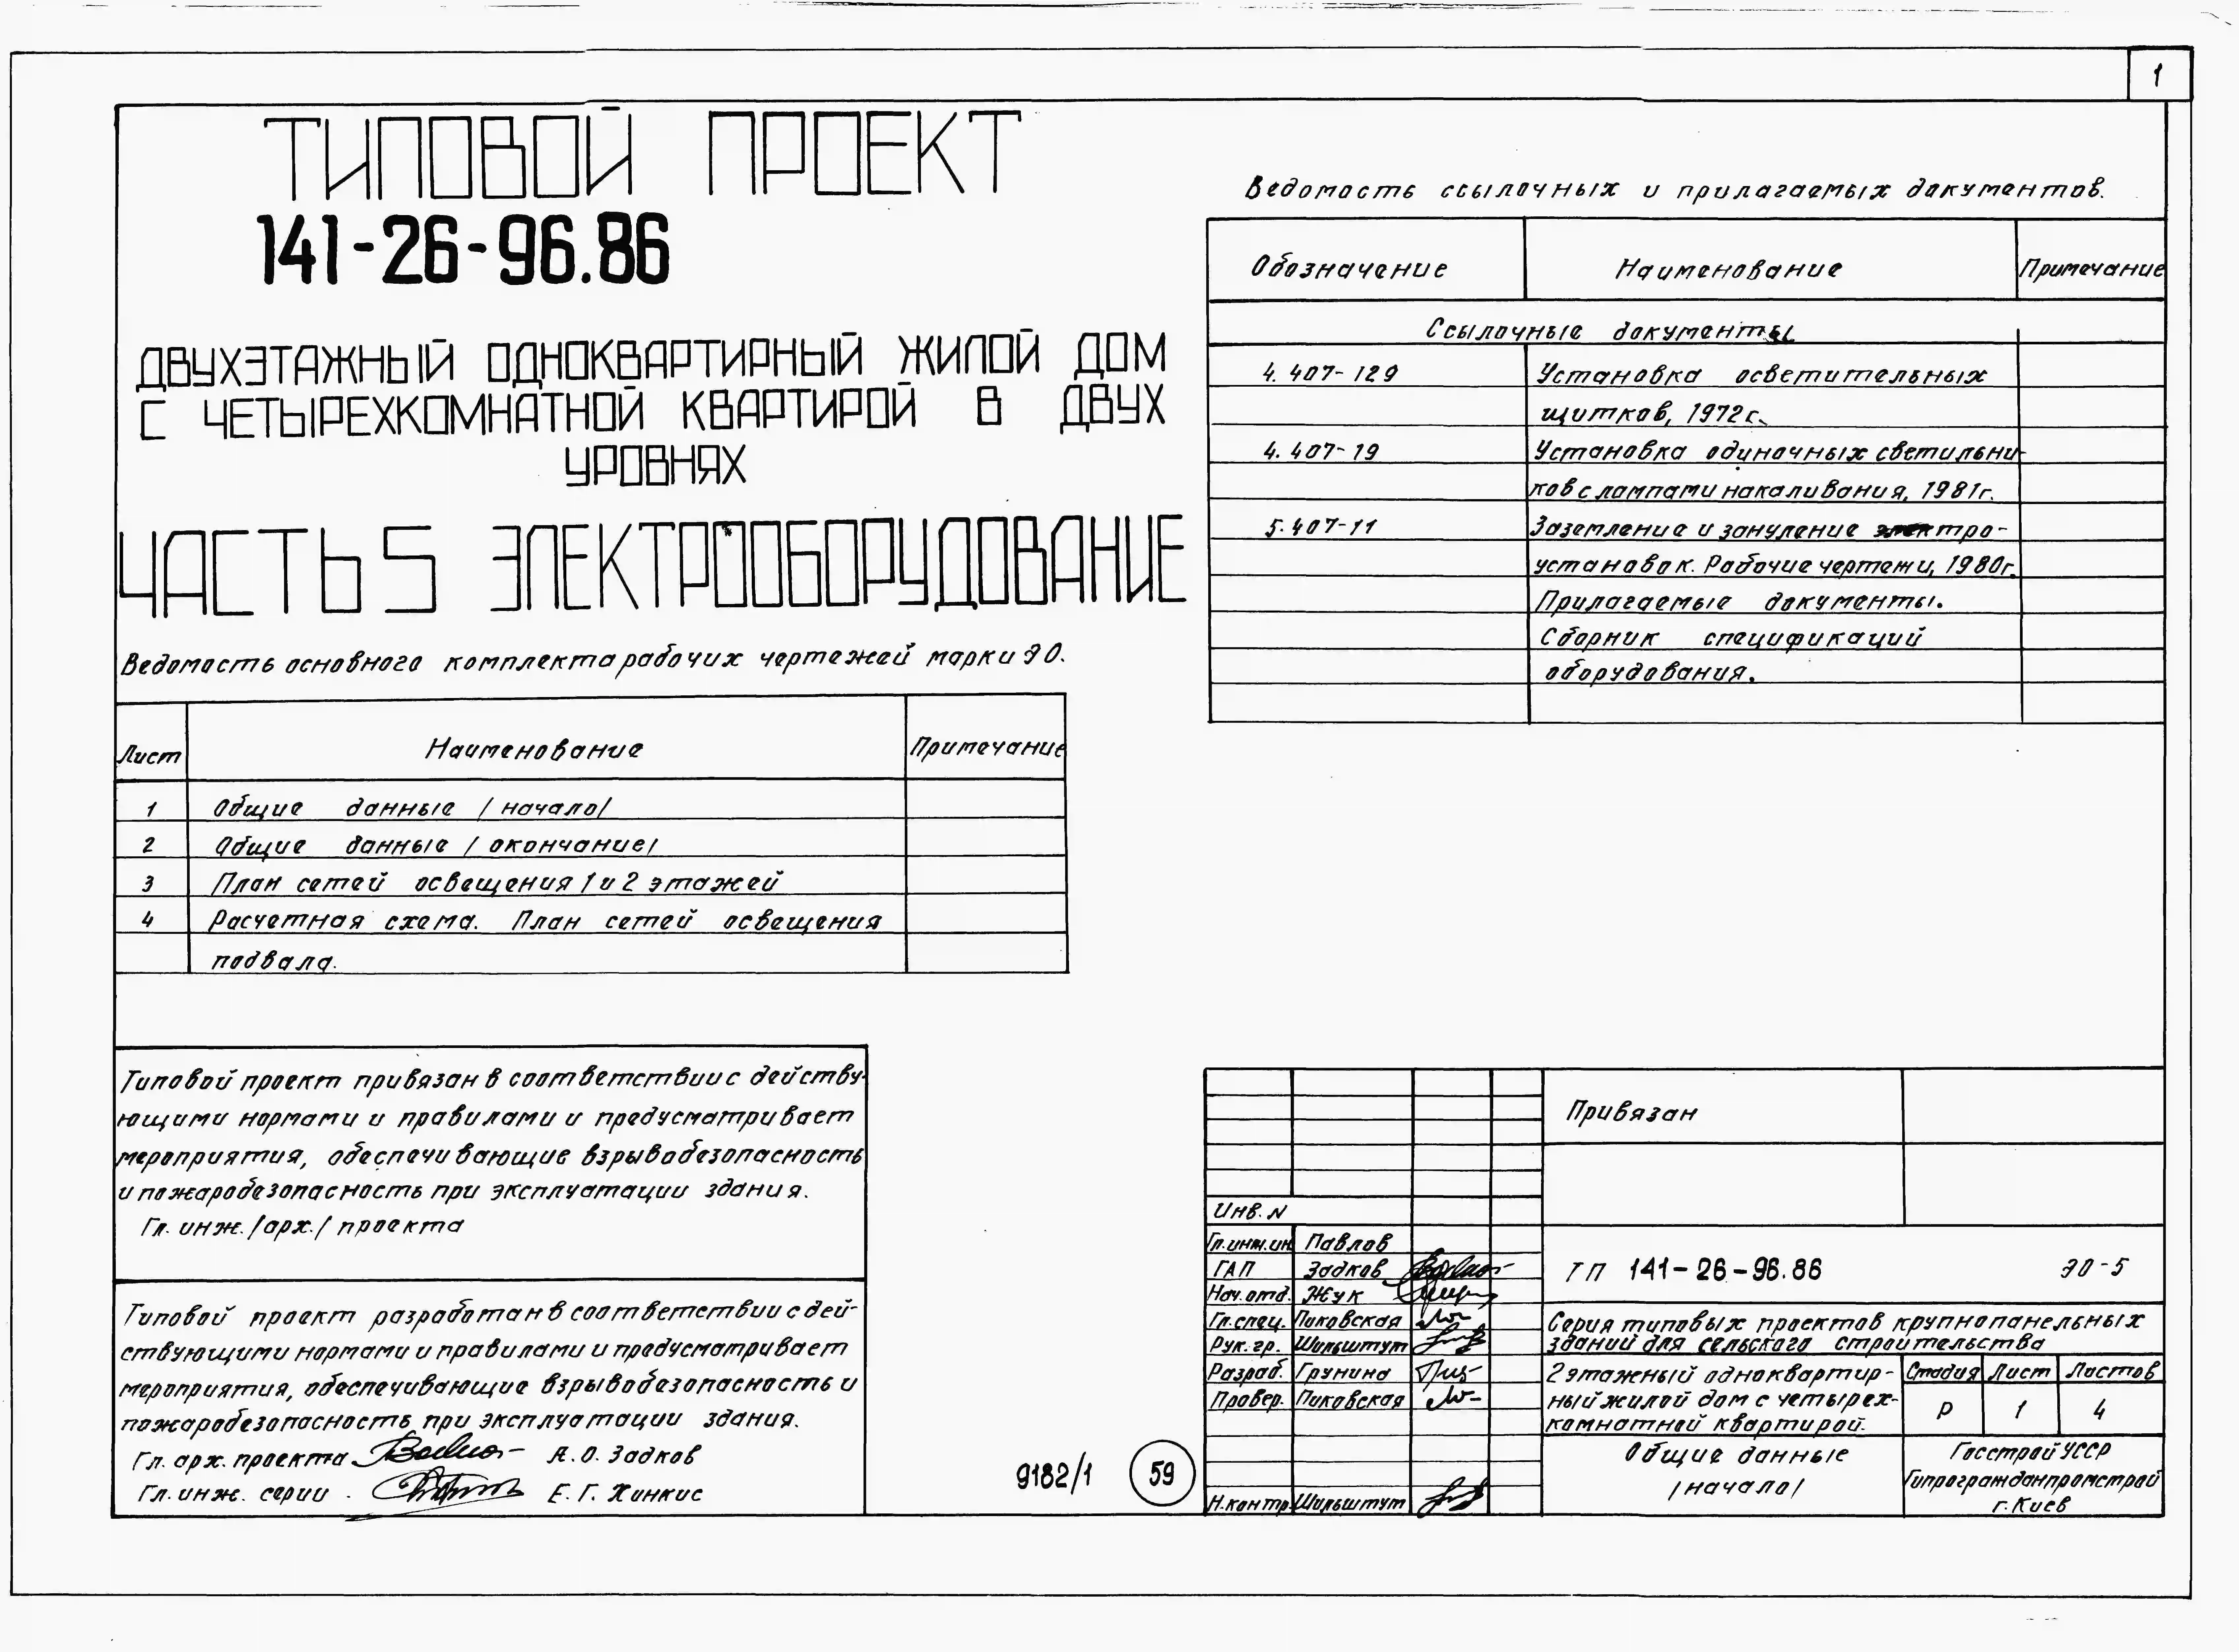 1
ТИПОВОЙ ПРОЕКТ
141-26-96.86
ДВУХЭТАЖНЫЙ ОДНОКВАРТИРНЫЙ ЖИЛОЙ ДОМ
С ЧЕТЫРЕХКОМНАТНОЙ КВАРТИРОЙ В ДВУХ
УРОВНЯХ
ЧАСТЬ 5 ЭЛЕКТРООБОРУДОВАНИЕ
Ведомость основного комплекта рабочих чертежей марки ЭО.
Лист Наименование Примечание
1 Общие данные /начало/
2 Общие данные /окончание/
3 План сетей освещения 1 и 2 этажей
4 Расчетная схема. План сетей освещения
подвала.
Типовой проект привязан в соответствии с действу-
ющими нормами и правилами и предусматривает
мероприятия, обеспечивающие взрывобезопасность
и пожаробезопасность при эксплуатации здания.
Гл. инж./арх./ проекта
Типовой проект разработан в соответствии с дей-
ствующими нормами и правилами и предусматривает
мероприятия, обеспечивающие взрывобезопасность и
пожаробезопасность при эксплуатации здания.
Гл. арх. проекта А.О. Задков
Гл. инж. серии Е.Г. Хинкис
Ведомость ссылочных и прилагаемых документов.
Обозначение Наименование Примечание
Ссылочные документы
4.407-129 Установка осветительных
щитков, 1972г.
4.407-19 Установка одиночных светильни-
ков с лампами накаливания, 1981г.
5.407-11 Заземление и зануление электро-
установок. Рабочие чертежи, 1980г.
Прилагаемые документы.
Сборник спецификаций
оборудования.
9182/1 59
Привязан
Инв. N
Гл.инж.ин. Павлов
ГАП Задков
Нач.отд. Жук
Гл.спец. Пиковская
Рук. гр. Шильштут
Разраб. Грунина
Провер. Пиковская
Н.контр. Шильштут
ТП 141-26-96.86 ЭО-5
Серия типовых проектов крупнопанельных
зданий для сельского строительства
2 этажный одноквартир-
ный жилой дом с четырех-
комнатней квартирой.
Стадия Лист Листов
Р 1 4
Общие данные
/начало/
Госстрой УССР
Гипрогражданпромстрой
г. Киев